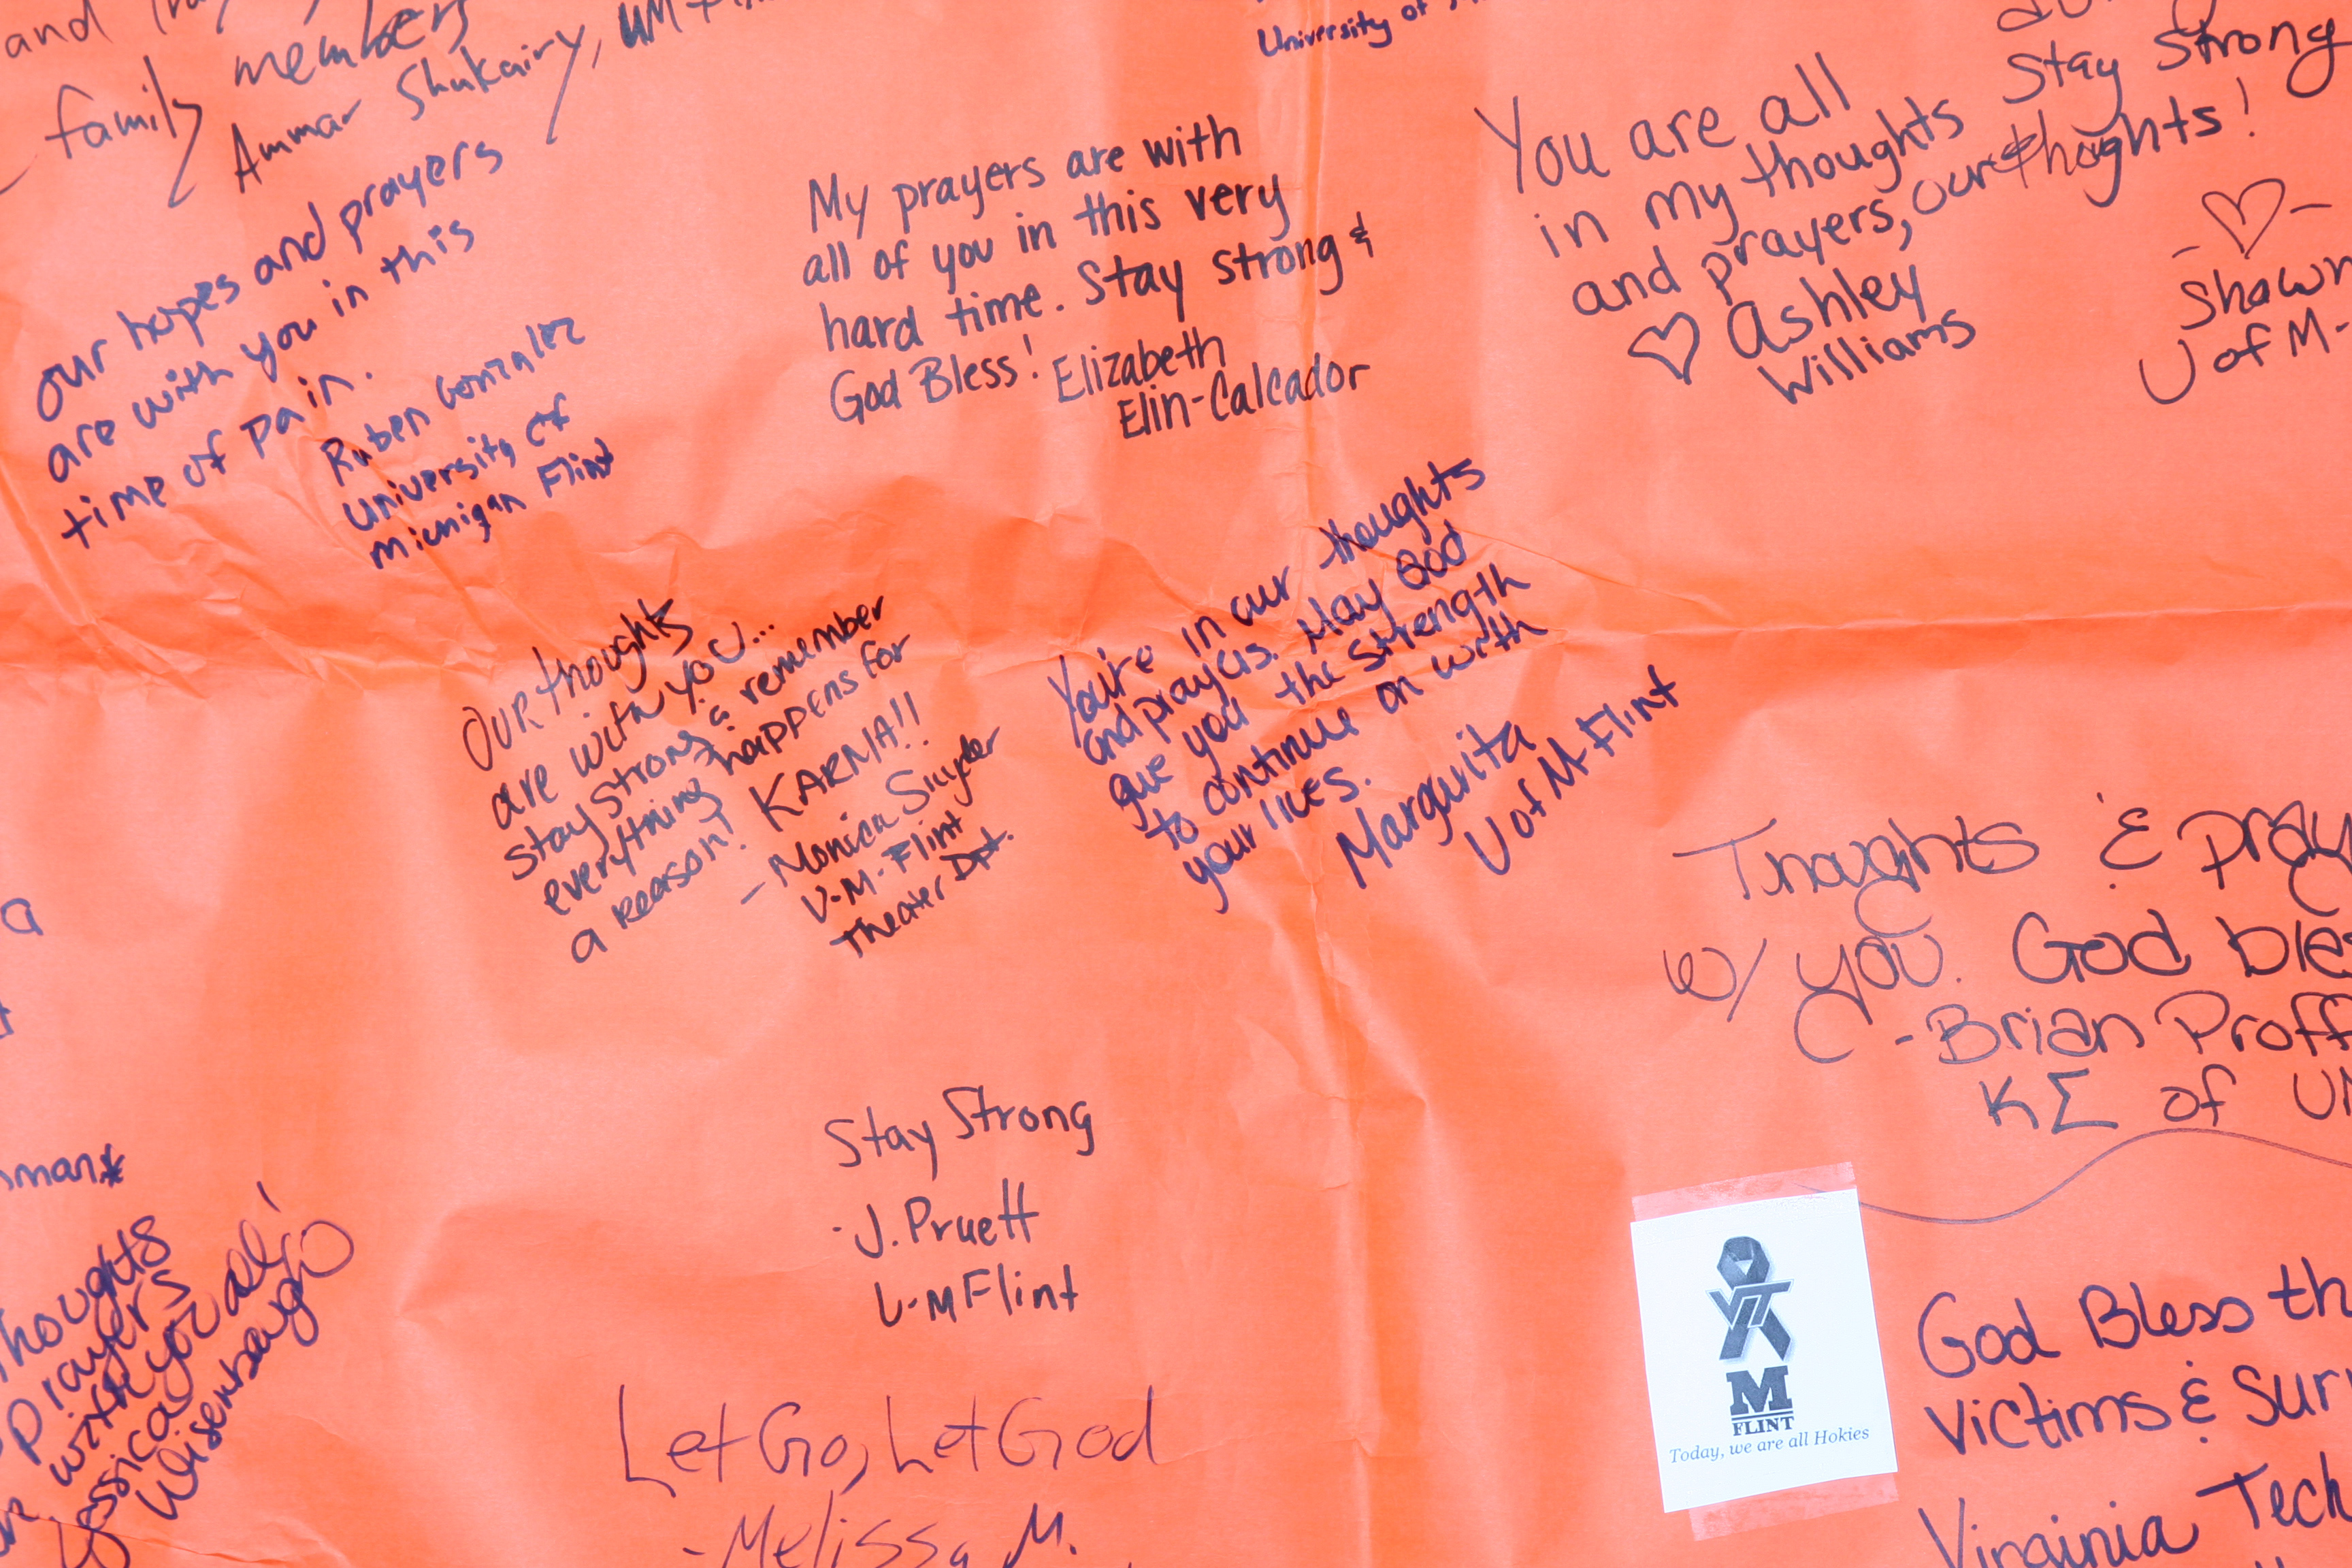 and
family members
Ammar Shukairy, UM-
our hopes and prayers
are with you in this
time of pain.
Ruben Gonzalez
University of
Michigan Flint
University of
My prayers are with
all of you in this very
hard time. Stay strong &
God Bless! Elizabeth
Elin-Calcador
You are all
in my thoughts
and prayers,
♡ Ashley
Williams
Stay Strong
our thoghts!
-♡-
Shawn
U of M-
OUR thoughts
are with you...
stay strong & remember
everything happens for
a reason! KARMA!!
- Monica Snyder
U-M-Flint
Theater Dpt.
You're in our thoughts
and prayers. May God
give you the strength
to continue on with
your lives.
Margarita
U of M-Flint
Thoughts & pray
w/ you. God ble
- Brian Proff
KΣ of UM
Stay Strong
- J. Pruett
U-M Flint
Let Go, Let God
- Melissa M.
man*
Thoughts
prayers
with you all!
Jessica
Wisenbaugh
VT
M
FLINT
Today, we are all Hokies
God Bless th
Victims & Surv
Virginia Tech